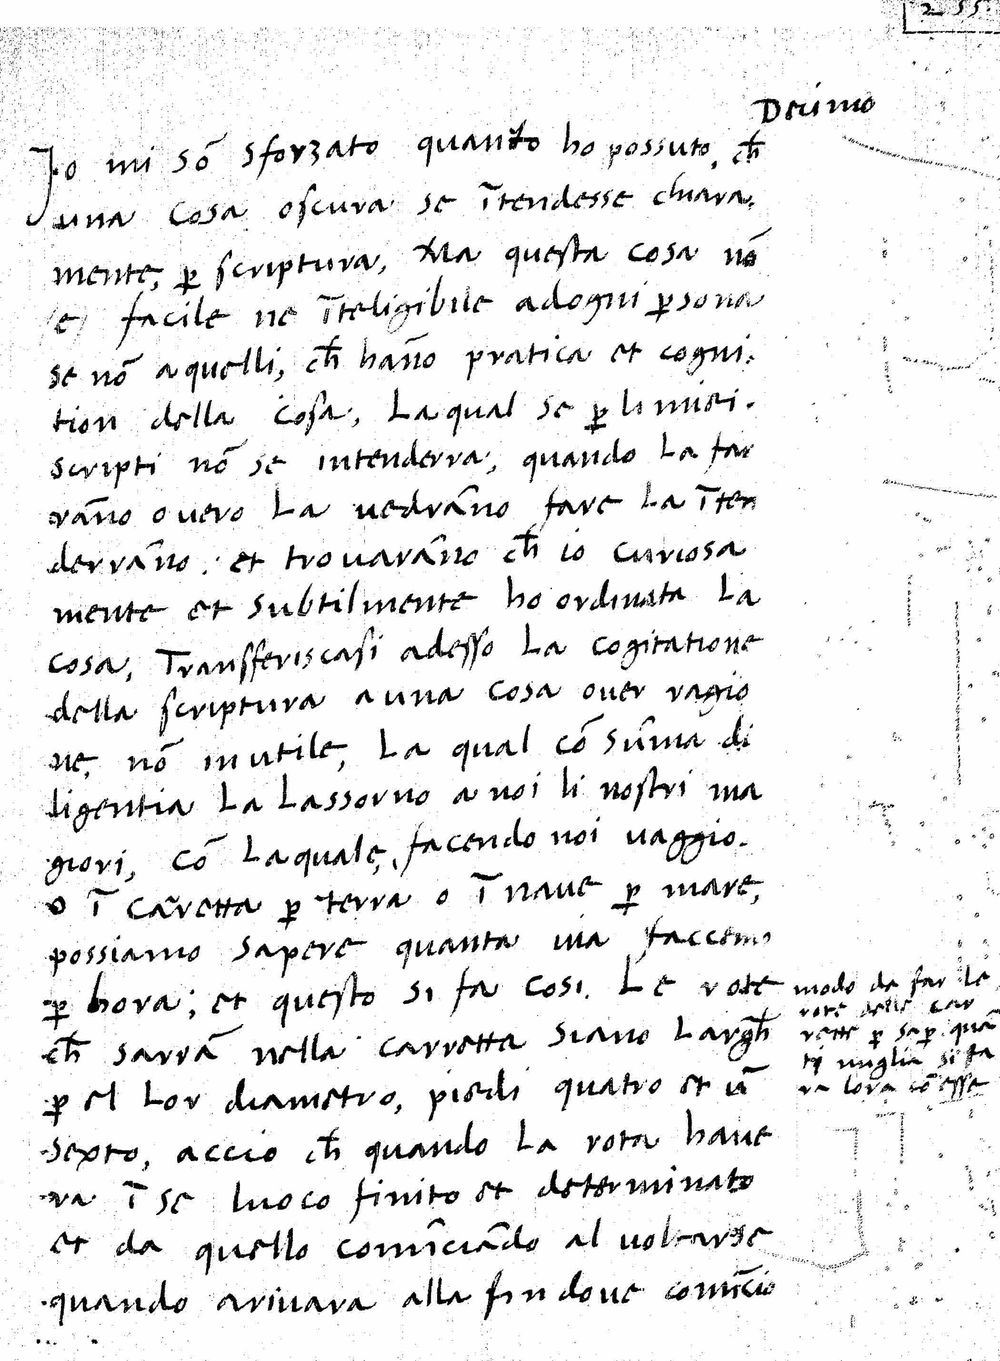 255
Decimo
Jo mi sō sforzato quanto ho possuto, ch̄
una cosa oscura se ītendesse chiara,
mente, ꝑ scriptura, Ma questa cosa nō
/e/ facile ne īteligibile adogni ꝑsona
se nō aquelli, ch̄ hāno pratica et cogni,
tion della cosa, La qual se ꝑ li miei
scripti nō se intenderra, quando La far
rāno overo La vedrāno fare La īten
derrāno, et trovarāno ch̄ io curiosa
mente et subtilmente ho ordinata La
cosa, Transferiscasi adesso La cogitatione
della scriptura a una cosa over ragio
ne, nō inutile, La qual cō sūma di
ligentia La Lassorno a noi li nostri ma
giori, cō Laquale, facendo noi uaggio
o ī caretta ꝑ terra o ī naue ꝑ mare,
possiamo sapere quanta uia faccemo
ꝑ hora; et questo si fa cosi. Le rote
ch̄ sarrā nella carretta siano Largh̄
ꝑ el Lor diametro, piedi quatro et ū
sexto, accio ch̄ quando La rota haue
ra ī se luoco finito et determinato
et da quello comīciādo al voltarse
quando arivara alla fin dove comīcio
modo da far le
rote delle car
rette ꝑ saꝑ quā
ti miglia si fa
ra lora cō esse